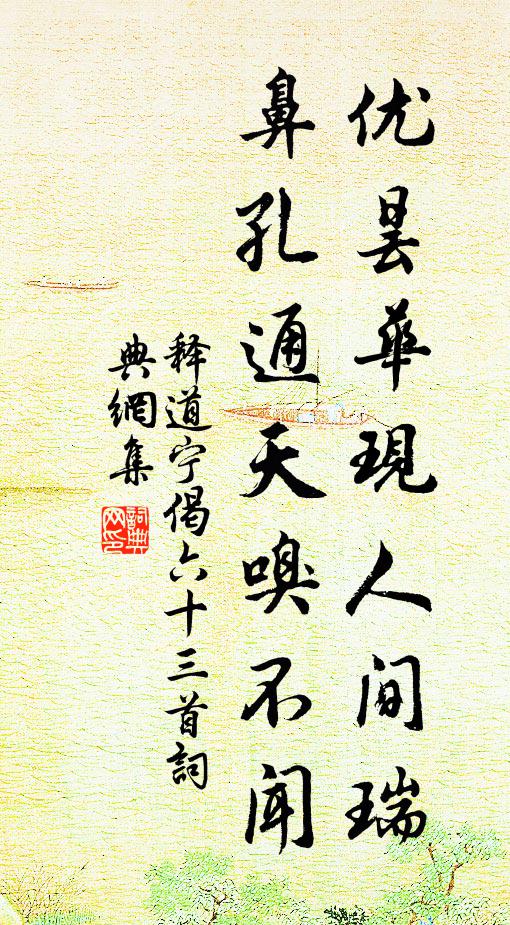 优昙華現人间瑞
鼻孔通天嗅不闻
释道宁偈六十三首詞
典網集
詞典
网印